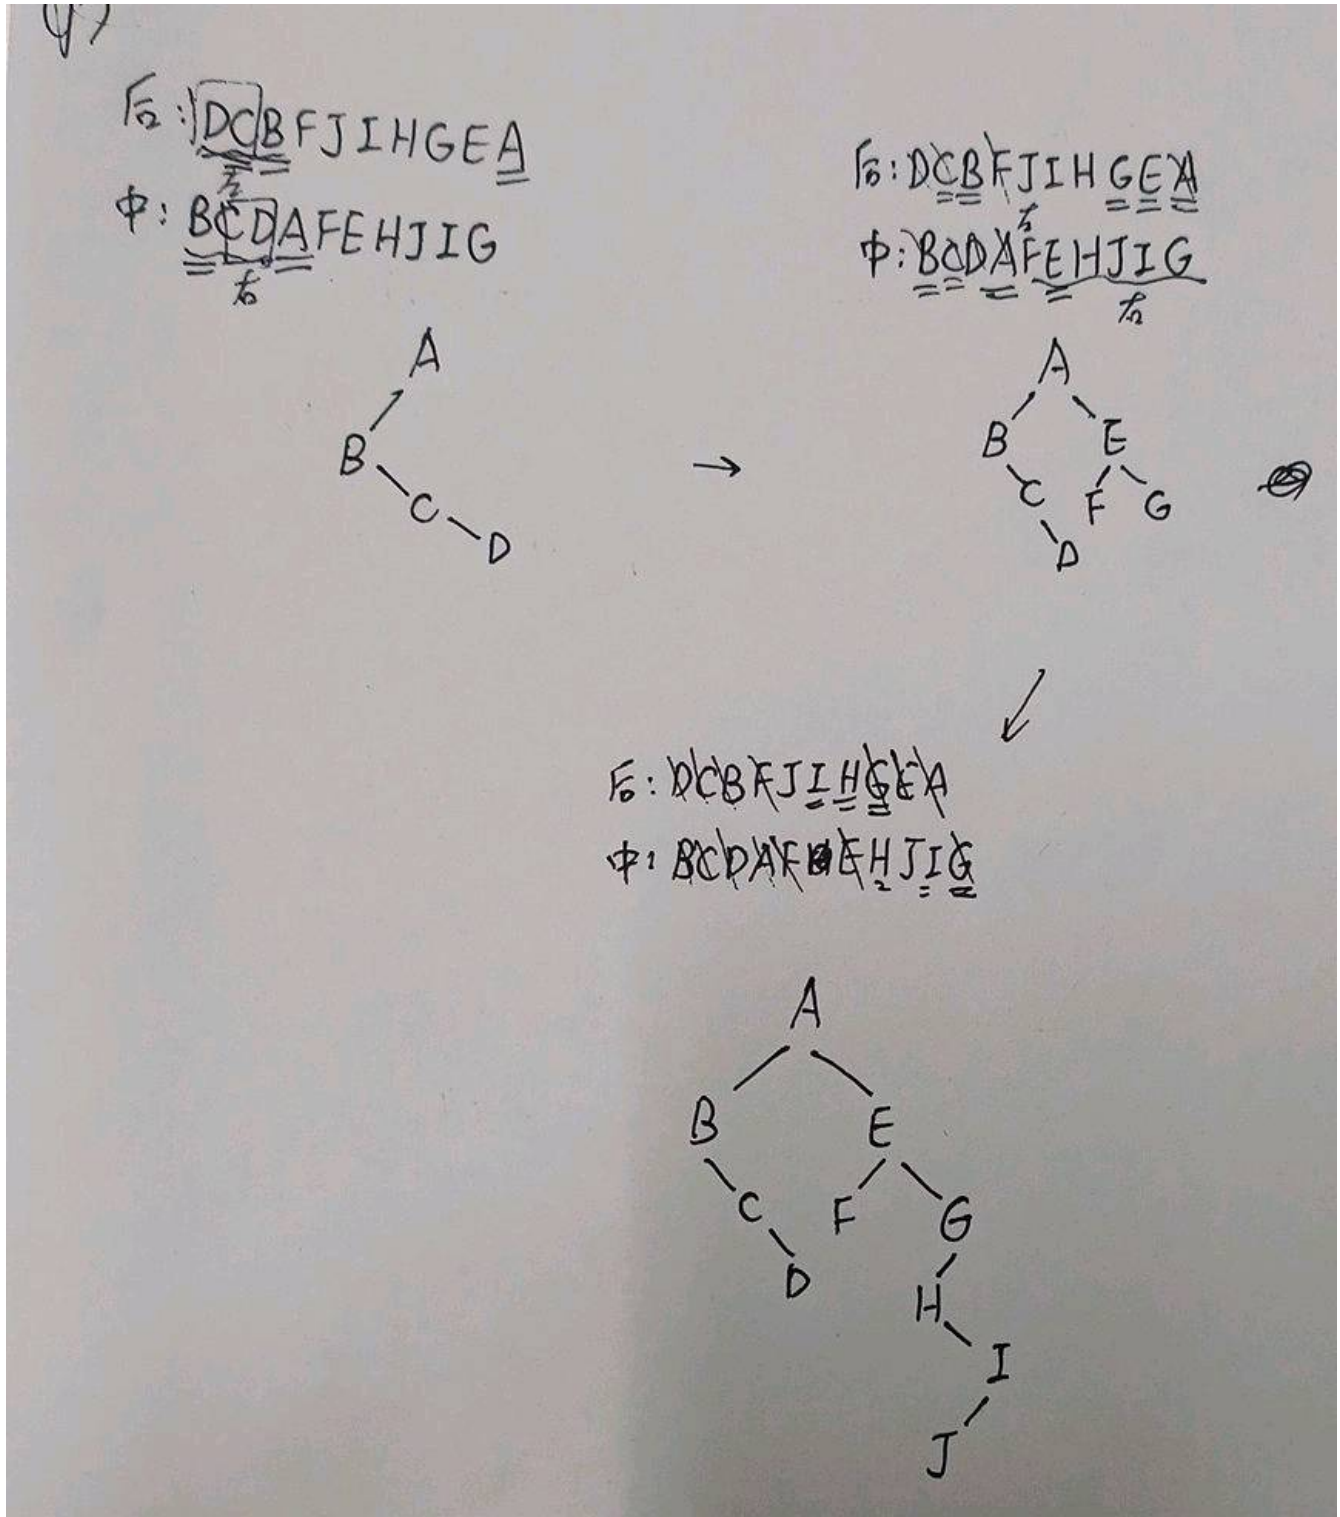 后: DCBFJIHGEA
左
中: BCDAFEHJIG
右
A
B
C
D
→
后: DCBFJIHGEA
左
中: BCDAFEHJIG
右
A
B E
C F G
D
后: DCBFJIHGEA
中: BCDAFEHJIG
A
B E
C F G
D H
I
J